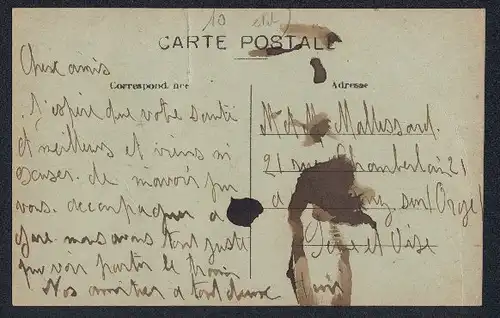 10
CARTE POSTALE
Correspond nce
Adresse
Chers amis
J'espère que votre santé
et meilleurs et viens m
de m'avoir pu
vous accompagner a
gare nous avons tout juste
que voir partir le train
Nos amitiés a tout deux
M et M Mallessard
21 rue Chamberlain 21
a sur/Orge
Seine et Oise